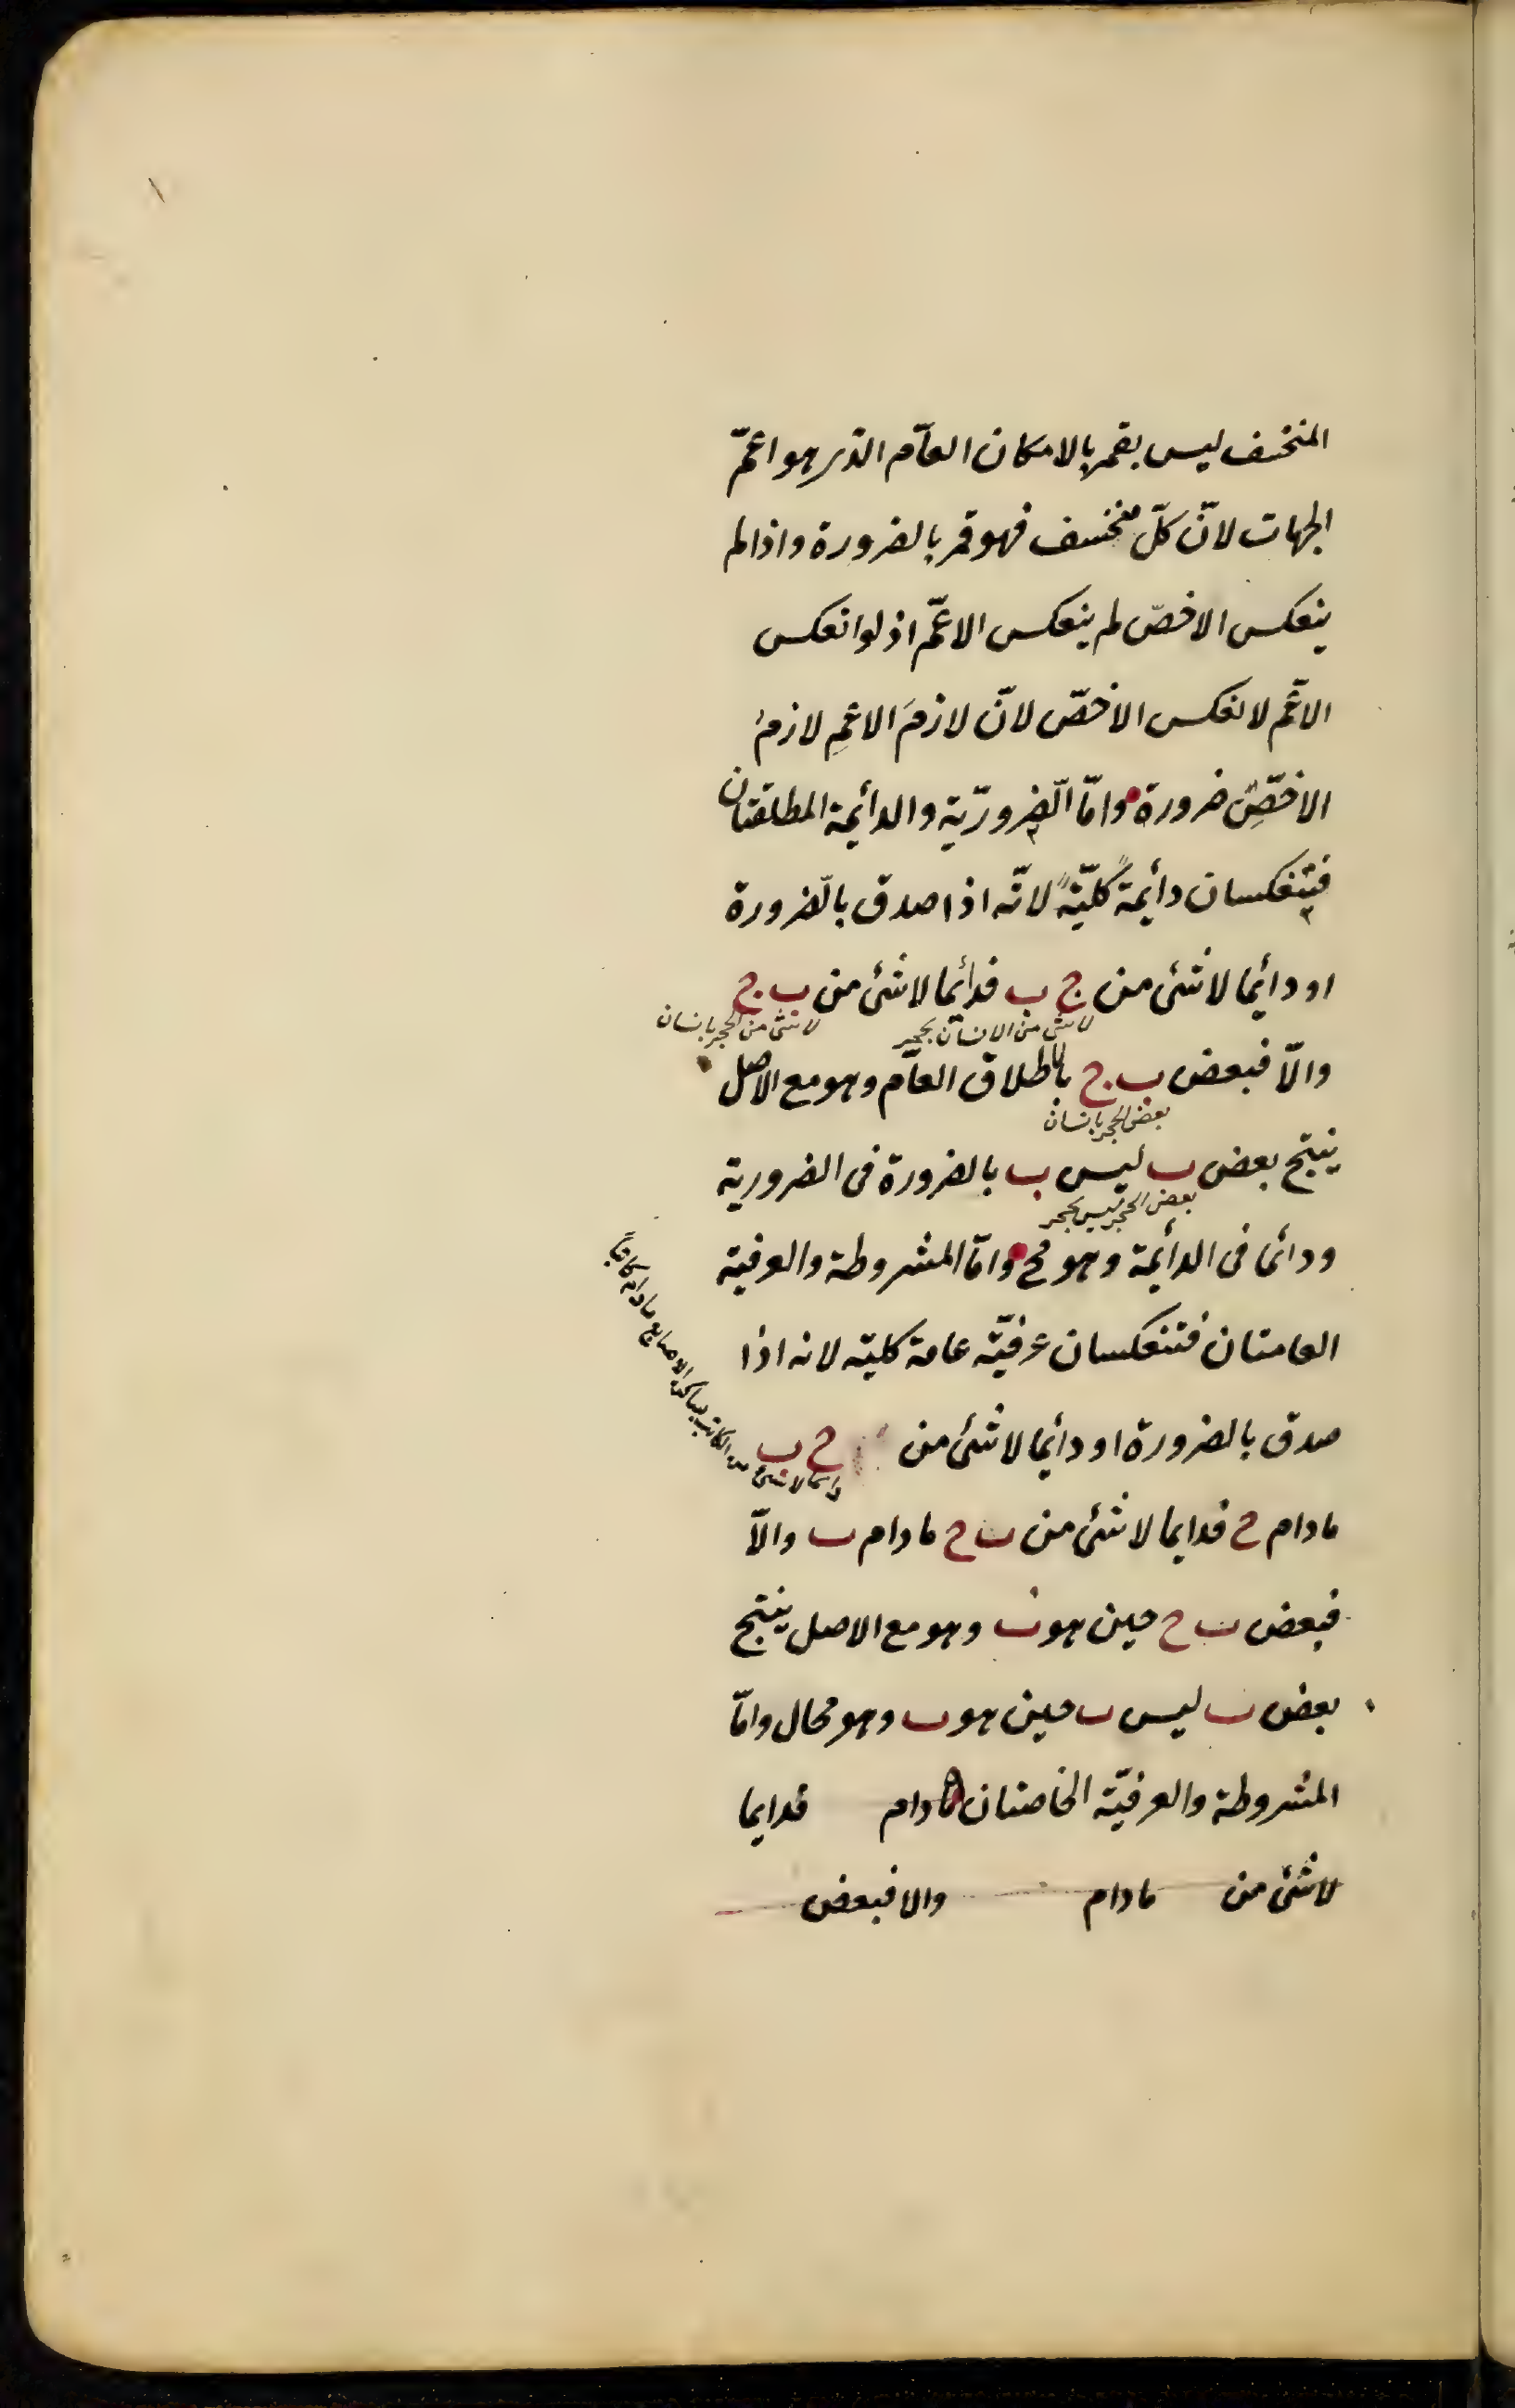 المنخسف ليس بقمر بالامكان العامّ الذى هو اعمّ
الجهات لانّ كلّ منخسف فهو قمر بالضرورة واذا لم
ينعكس الاخصّ لم ينعكس الاعمّ اذ لو انعكس
الاعّم لانعكس الاخصّ لانّ لازمَ الاعمِ لازمُ
الاخصِّ ضرورة وامّا الضّروريّة والدائمة المطلقتان
فتنعكسان دائمةً كليّةً لانّه اذا صدق بالضّرورة
او دائما لا شئ من ج ب فدائما لا شئ من ب ج
لا شئ من الانسان بحجر
لا شئ من الحجر بانسان
والّا فبعض ب ج بالاطلاق العامّ وهو مع الاصل
بعض الحجر بانسان
ينتج بعض ب ليس ب بالضرورة فى الضرورية
بعض الحجر ليس بحجر
ودائما فى الدائمة وهو مح وامّا المشروطة والعرفية
العامتان فتنعكسان عرفيّة عامة كلية لانه اذا
صدق بالضرورة او دائما لا شئ من ج ب
دائما لا شئ من الكاتب بساكن الاصابع مادام كاتباً
مادام ج فدايما لا شئ من ب ج مادام ب والّا
فبعض ب ج حين هو ب وهو مع الاصل ينتج
بعض ب ليس ب حين هو ب وهو محال وامّا
المشروطة والعرفيّة الخاصتان مادام فدايما
لا شئ من مادام والا فبعض